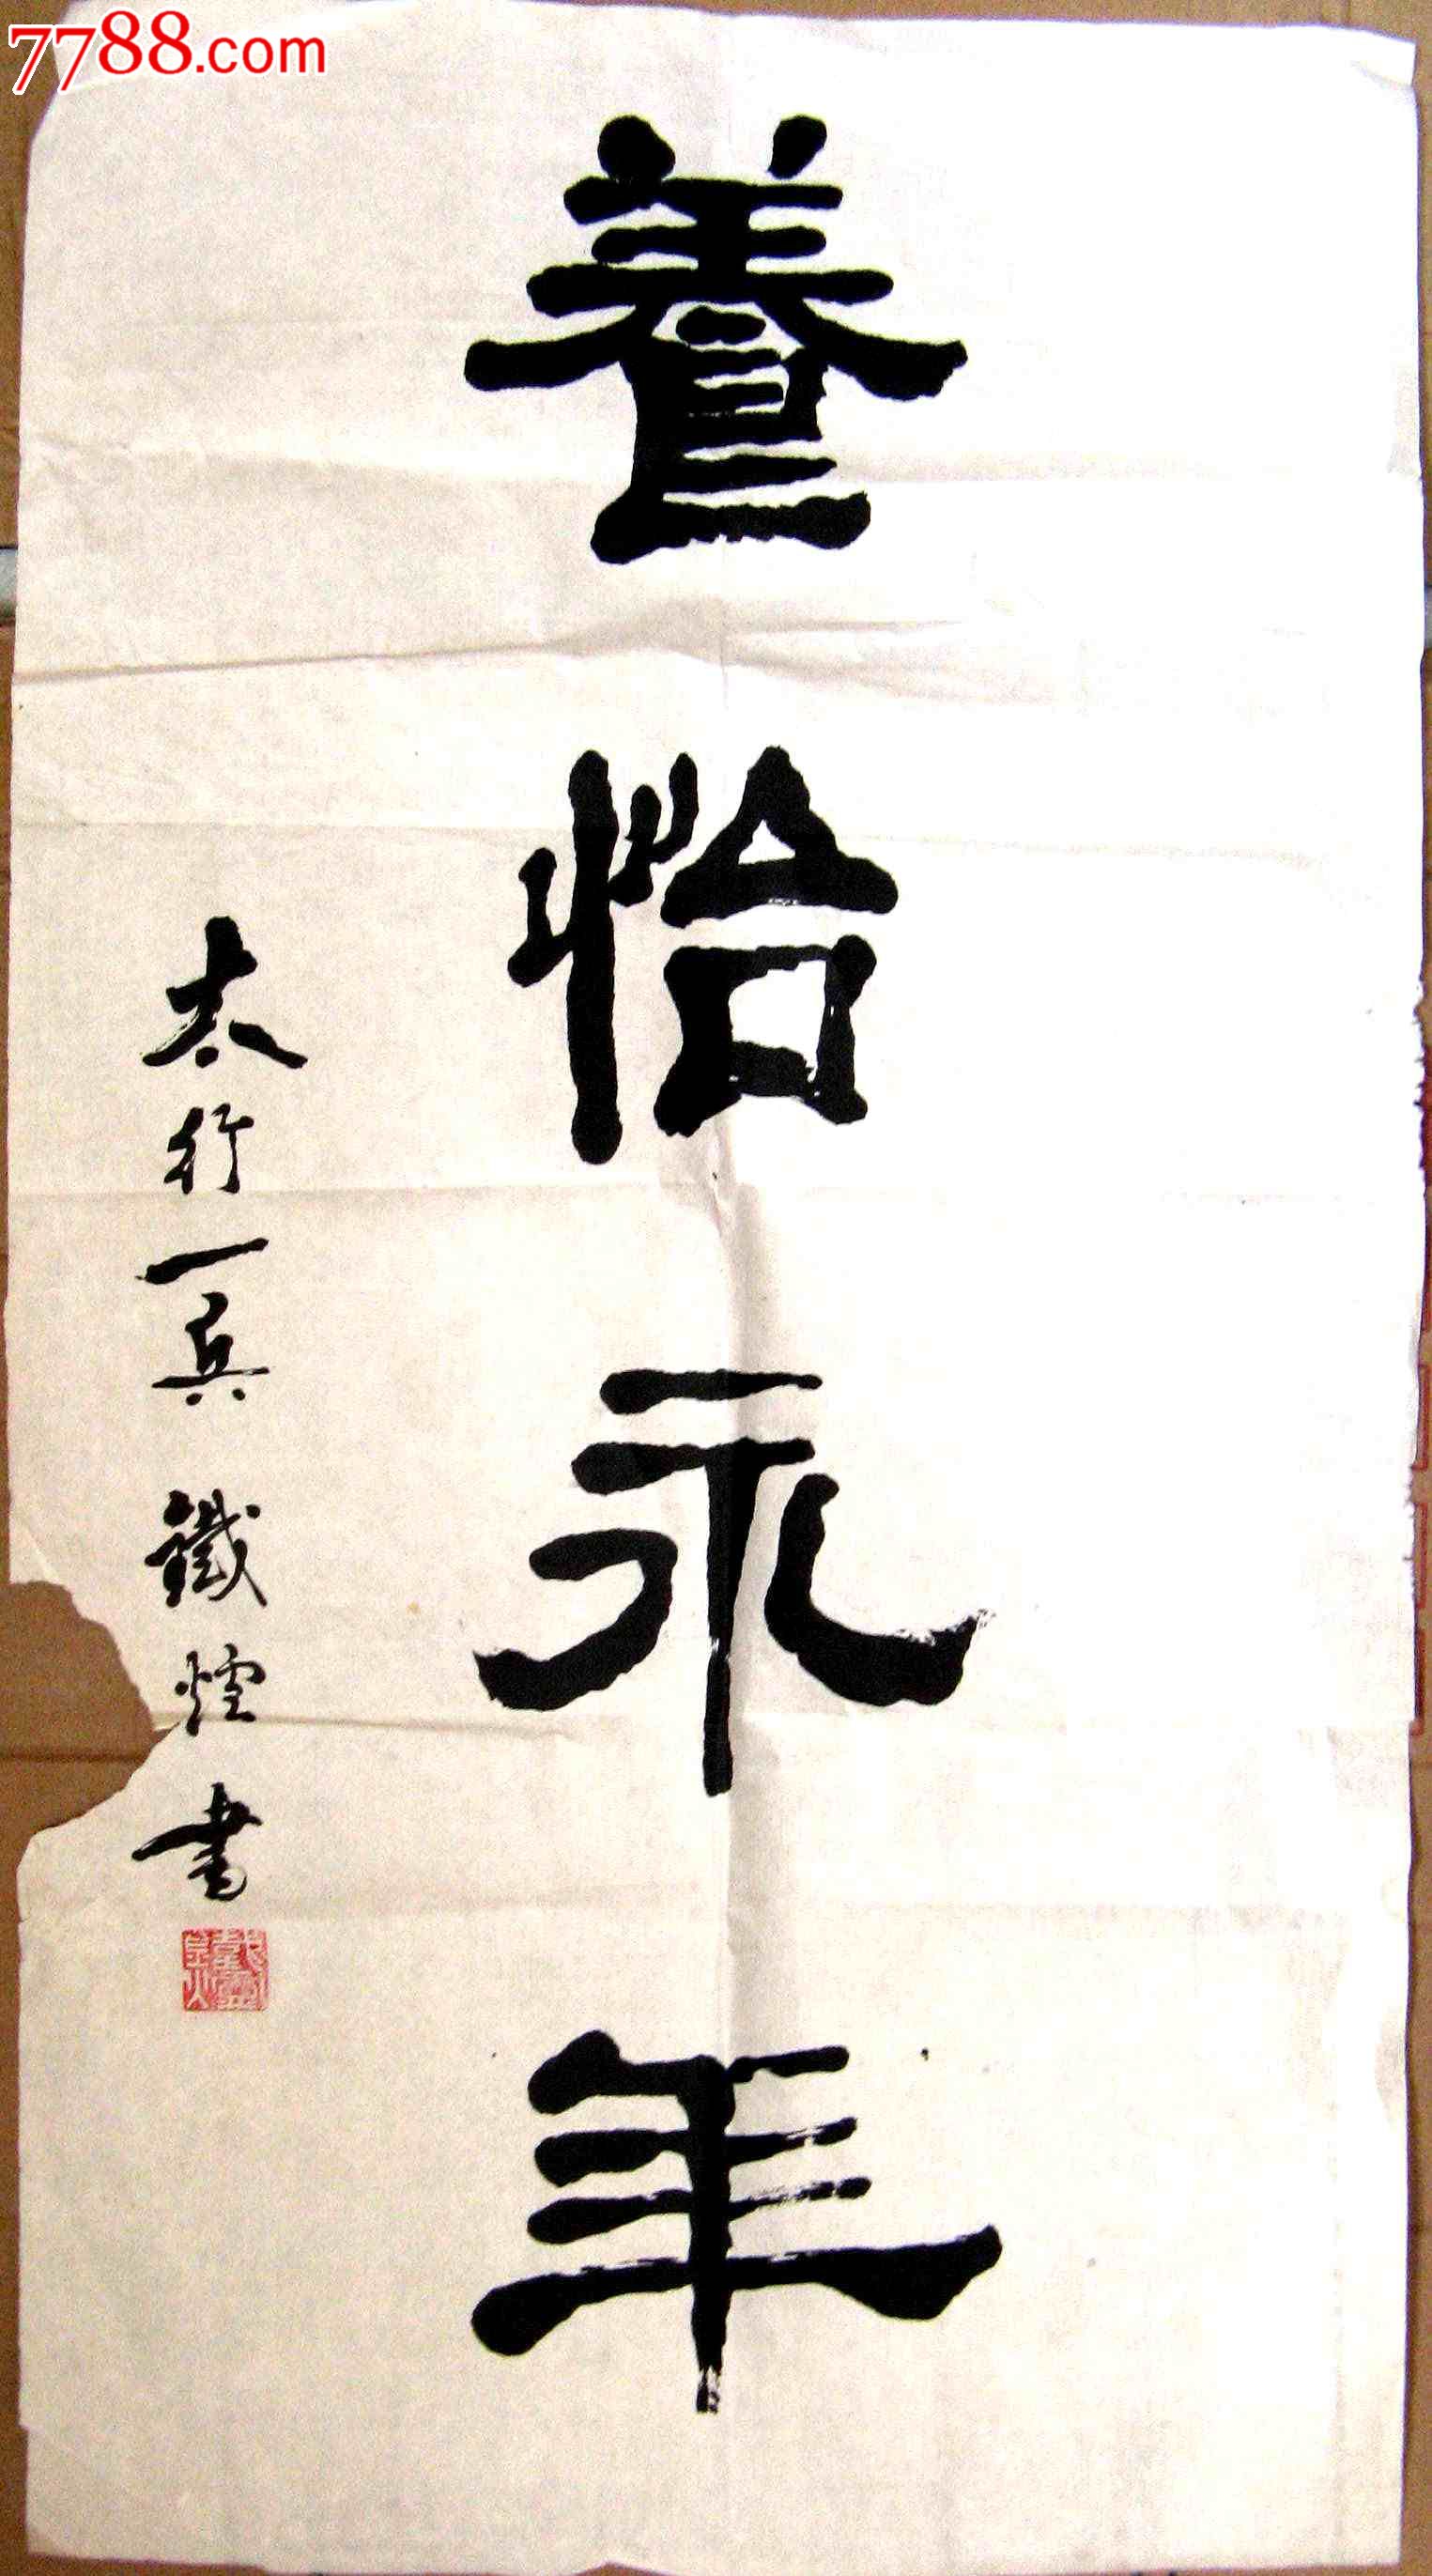 7788.com
養怡永年
太行一兵 鐵煌書